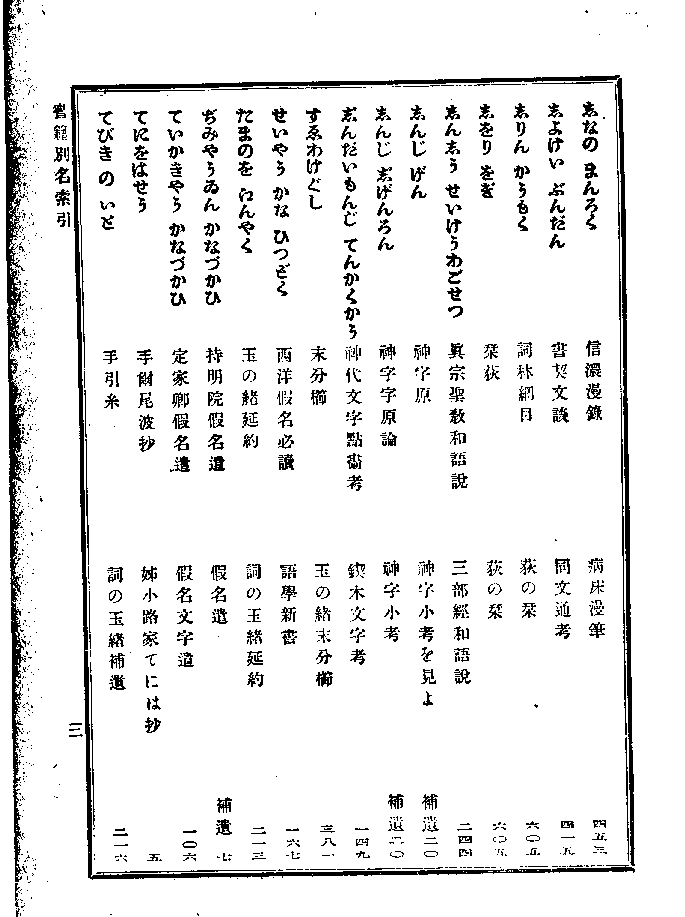 しなの まんろく 信濃漫錄 病床漫筆 四五三
しよけい ぶんだん 書契文談 同文通考 四一五
しりん かうもく 詞林綱目 荻の栞 六〇五
しをり をぎ 栞荻 荻の栞 六〇五
しんしう せいけうわごせつ 眞宗聖敎和語說 三部經和語說 二四四
しんじ げん 神字原 神字小考を見よ 補遺二〇
しんじ じげんろん 神字字原論 神字小考 補遺二〇
しんだいもんじ てんかくかう 神代文字點畫考 鍥木文字考 一四九
すゑわけぐし 末分櫛 玉の緒末分櫛 三八一
せいやう かな ひつどく 西洋假名必讀 語學新書 一六七
たまのを えんやく 玉の緒延約 詞の玉緒延約 二一三
ぢみやうゐん かなづかひ 持明院假名遣 假名遣 補遺 七
ていかきやう かなづかひ 定家卿假名遣 假名文字遣 一〇六
てにをはせう 手爾尾波抄 姊小路家てには抄 五
てびき の いと 手引糸 詞の玉緒補遺 二一六
書籍別名索引
三